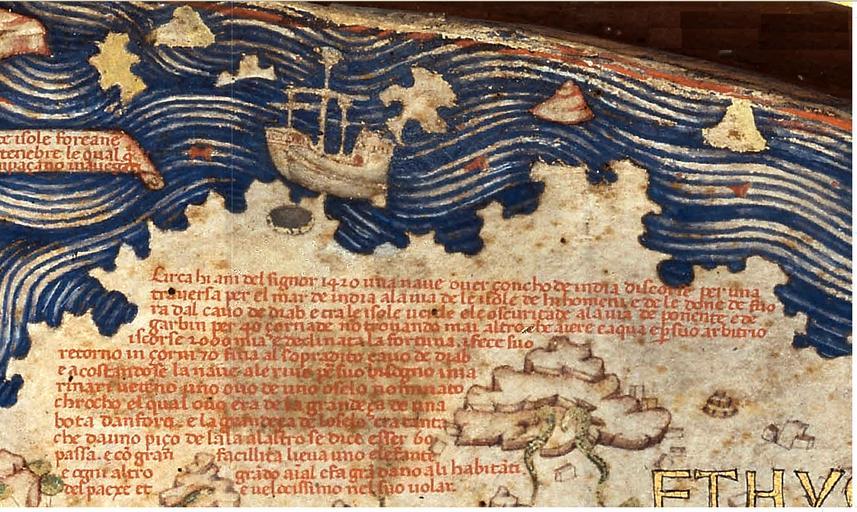 te isole foreane
tenebre le qual q̄
Circa hi ani del signor 1420 una nave over concho de india discorse per una
traversa per el mar de india a la via de le isole de hi homeni e de le done de fuo
ra dal cavo de diab e tra le isole verde e le oscuritade a la via de ponente e de
garbin per 40 çornade no trovando mai altro che aiere e aqua e p suo arbitrio
iscorse 2000 mia e declinata la fortuna i fece suo
retorno in çorni 70 fina al sopradito cavo de diab
e acostandose la nave a le rive p suo bisogno i na
rinari vedeno uno ovo de uno oselo nominato
chrocho el qual ovo era de la grandeça de una
bota d anfora e la grandeça de l oselo era tanta
che da uno piço de l ala a l altro se dice esser 60
passa e cō gran facilita lieva uno elefante
e ogni altro grādo aīal e fa grā dano a li habitāti
del paexe et e velocissimo nel suo volar
ETHYO